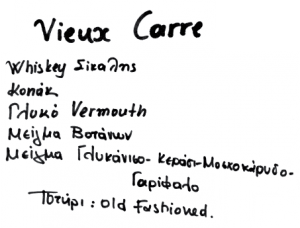 Vieux Carre
Whiskey Σικαλης
Κονιάκ
Γλυκό Vermouth
Μείγμα Βοτάνων
Μείγμα Γλυκάνισο-Κεράσι-Μοσχοκάρυδο-
Γαρίφαλο
Ποτήρι: Old Fashioned.